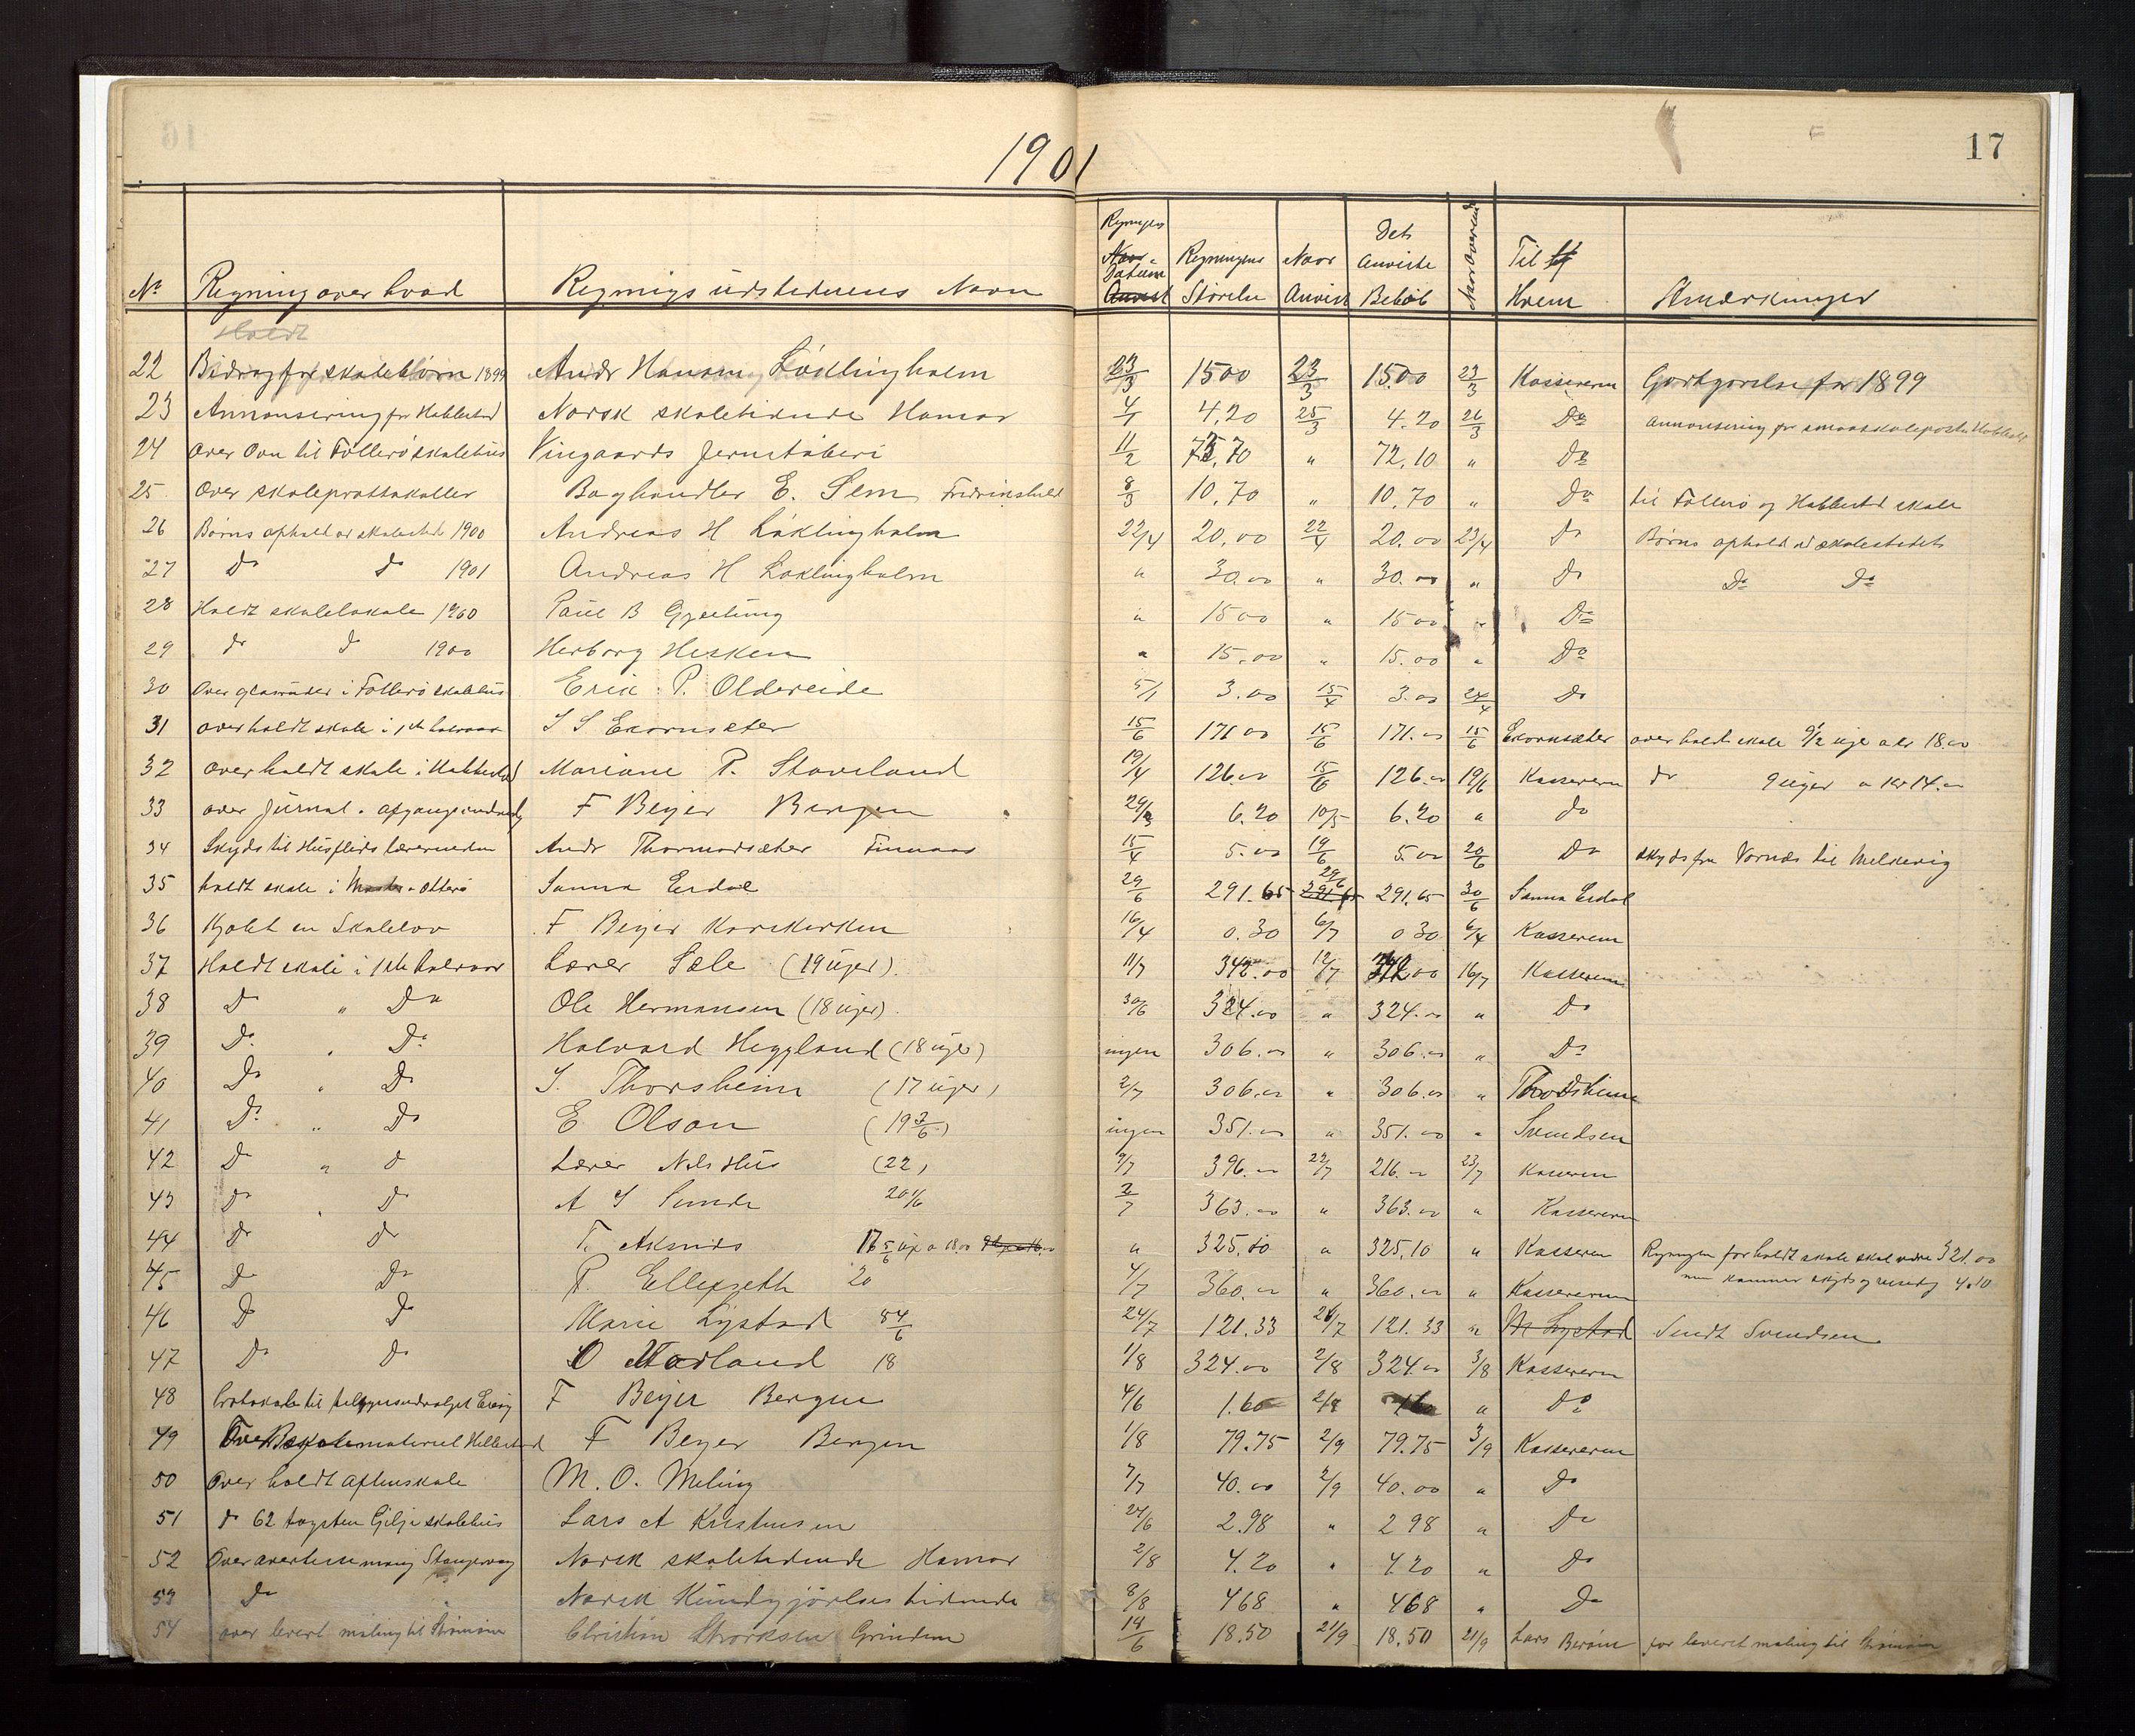 1901
17
No Regning over hvad Regnings udstederens Navn Regningens Datum Regningens Störelse Naar Anvist Det Anviste Belöb Naar Oversendt Til Hvem Anmærkninger
Holdt
22 Bidrag for skolebörn 1899 Andr Hansen Löklingholm 23/3 15 00 23/3 15.00 23/3 Kassereren Godtgjorelse for 1899
23 Annonsering for Habbestad Norsk skoletidende Hamar 4/1 4,20 25/3 4.20 26/3 Do Annonsering for smaaskolepost Habbestad
24 Over Ovn til Follerö skolehus Vingaards Jernstöberi 11/2 " 72,10 " Do
25 Over skoleprottokoller Boghandler E. Sem Fredrikshald 8/3 10,70 " 10,70 " Do til Follerö og Habbestad skole
26 Börns ophold ved skolested 1900 Andreas H Löklingholm 22/4 20,00 22/4 20.00 23/4 Do Börns ophold ved skolestedet
27 Do Do 1901 Andreas H Löklingholm " 30.00 " 30.00 " Do Do Do
28 Holdt skolelokale 1900 Paul B Gjetung " 15 00 " 15 00 " Do
29 do d 1900 Herborg Hesken " 15,00 " 15.00 " Do
30 Over glasruder i Follerö skolehus Erik P. Oldereide 5/1 3.00 15/4 3.00 24/4 Do
31 over holdt skole i 1ste halvaar S S Ekornsæter 15/6 171 00 15/6 171.00 15/6 Ekornsæter over holdt skole 9 1/2 uge a kr 18.00
32 over holdt skole i Habbestad Mariane P. Stoveland 19/4 126.00 15/6 126.00 19/6 Kassereren do 9 uger a kr 14.00
33 over Jurnal. F Beyer Bergen 6.20 10/5 6.20 " do
34 Skyds til Husflids lærerinden Andr Thormodsæter Finnaas 15/4 5.00 19/6 5.00 20/6 Do skyds fra Vornæs til Melkevig
35 holdt skole i Otterö Sanna Erdal 29/6 291.65 29/6 291.65 30/6 Sanna Erdal
36 Kjöbt en Skolelov F Beyer Korskirken 16/4 0.30 6/7 0 30 6/4 Kassereren
37 Holdt skole i 1ste halvaar Lærer Sæle (19 uger). 11/7 342.00 12/7 342 00 16/7 Kassereren
38 Do " Do Ole Hermansen (18 uger). 30/6 324.00 " 324.00 " Do
39 Do " Do Halvard Heggland (18 uger) ingen 306.00 " 306.00 " Do
40 Do " Do S. Thorsheim (17 uger) 2/7 306.00 " 306.00 " Thorsheim
41 Do " Do E Olson (19 3/6) ingen 351.00 " 351.00 " Svendsen
42 D " d Lærer Nils Hus (22) 9/7 396.00 22/7 216.00 23/7 Kasseren
43 Do " Do A S Sunde 20 1/6 2/7 363.00 " 363.00 " Kassereren
44 Do Do T. Aksnes 17 5/6 uge a 18.00 " 325.10 " 325,10 " Kasseren Regningen for holdt skole skal være 321.00
men kommer skyds og 4.10
45 Do Do P. Ellegseth 20 4/7 360.00 " 360.00 " Kassereren
46 Do Do Marie Lystad 54/6 24/7 121.33 26/7 121.33 " M Lystad Sendt Svendsen
47 Do Do O Mæland 18 1/8 324.00 2/8 324.00 3/8 Kassereren
48 Protokole til F Beyer Bergen 4/6 1.60 " Do
49 Over skolemateriel Helbestad F Beyer Bergen 1/8 79.75 2/9 79.75 3/9 Kassereren
50 Over holdt aftenskole M. O. Meling 7/7 40.00 2/9 40.00 " Do
51 do 62 tagsten Gilje skolehus Lars A Kristensen 24/6 2.98 " 2 98 " Do
52 Over Stangervag Norsk skoletidende Hamar 2/8 4.20 " 4.20 " Do
53 Do Norsk Kundgjörlses tidende 8/8 4 68 " 4 68 " Do
54 over levert maling til Christian Grinden 14/6 18.50 21/9 18.50 21/9 Lars for leveret maling til